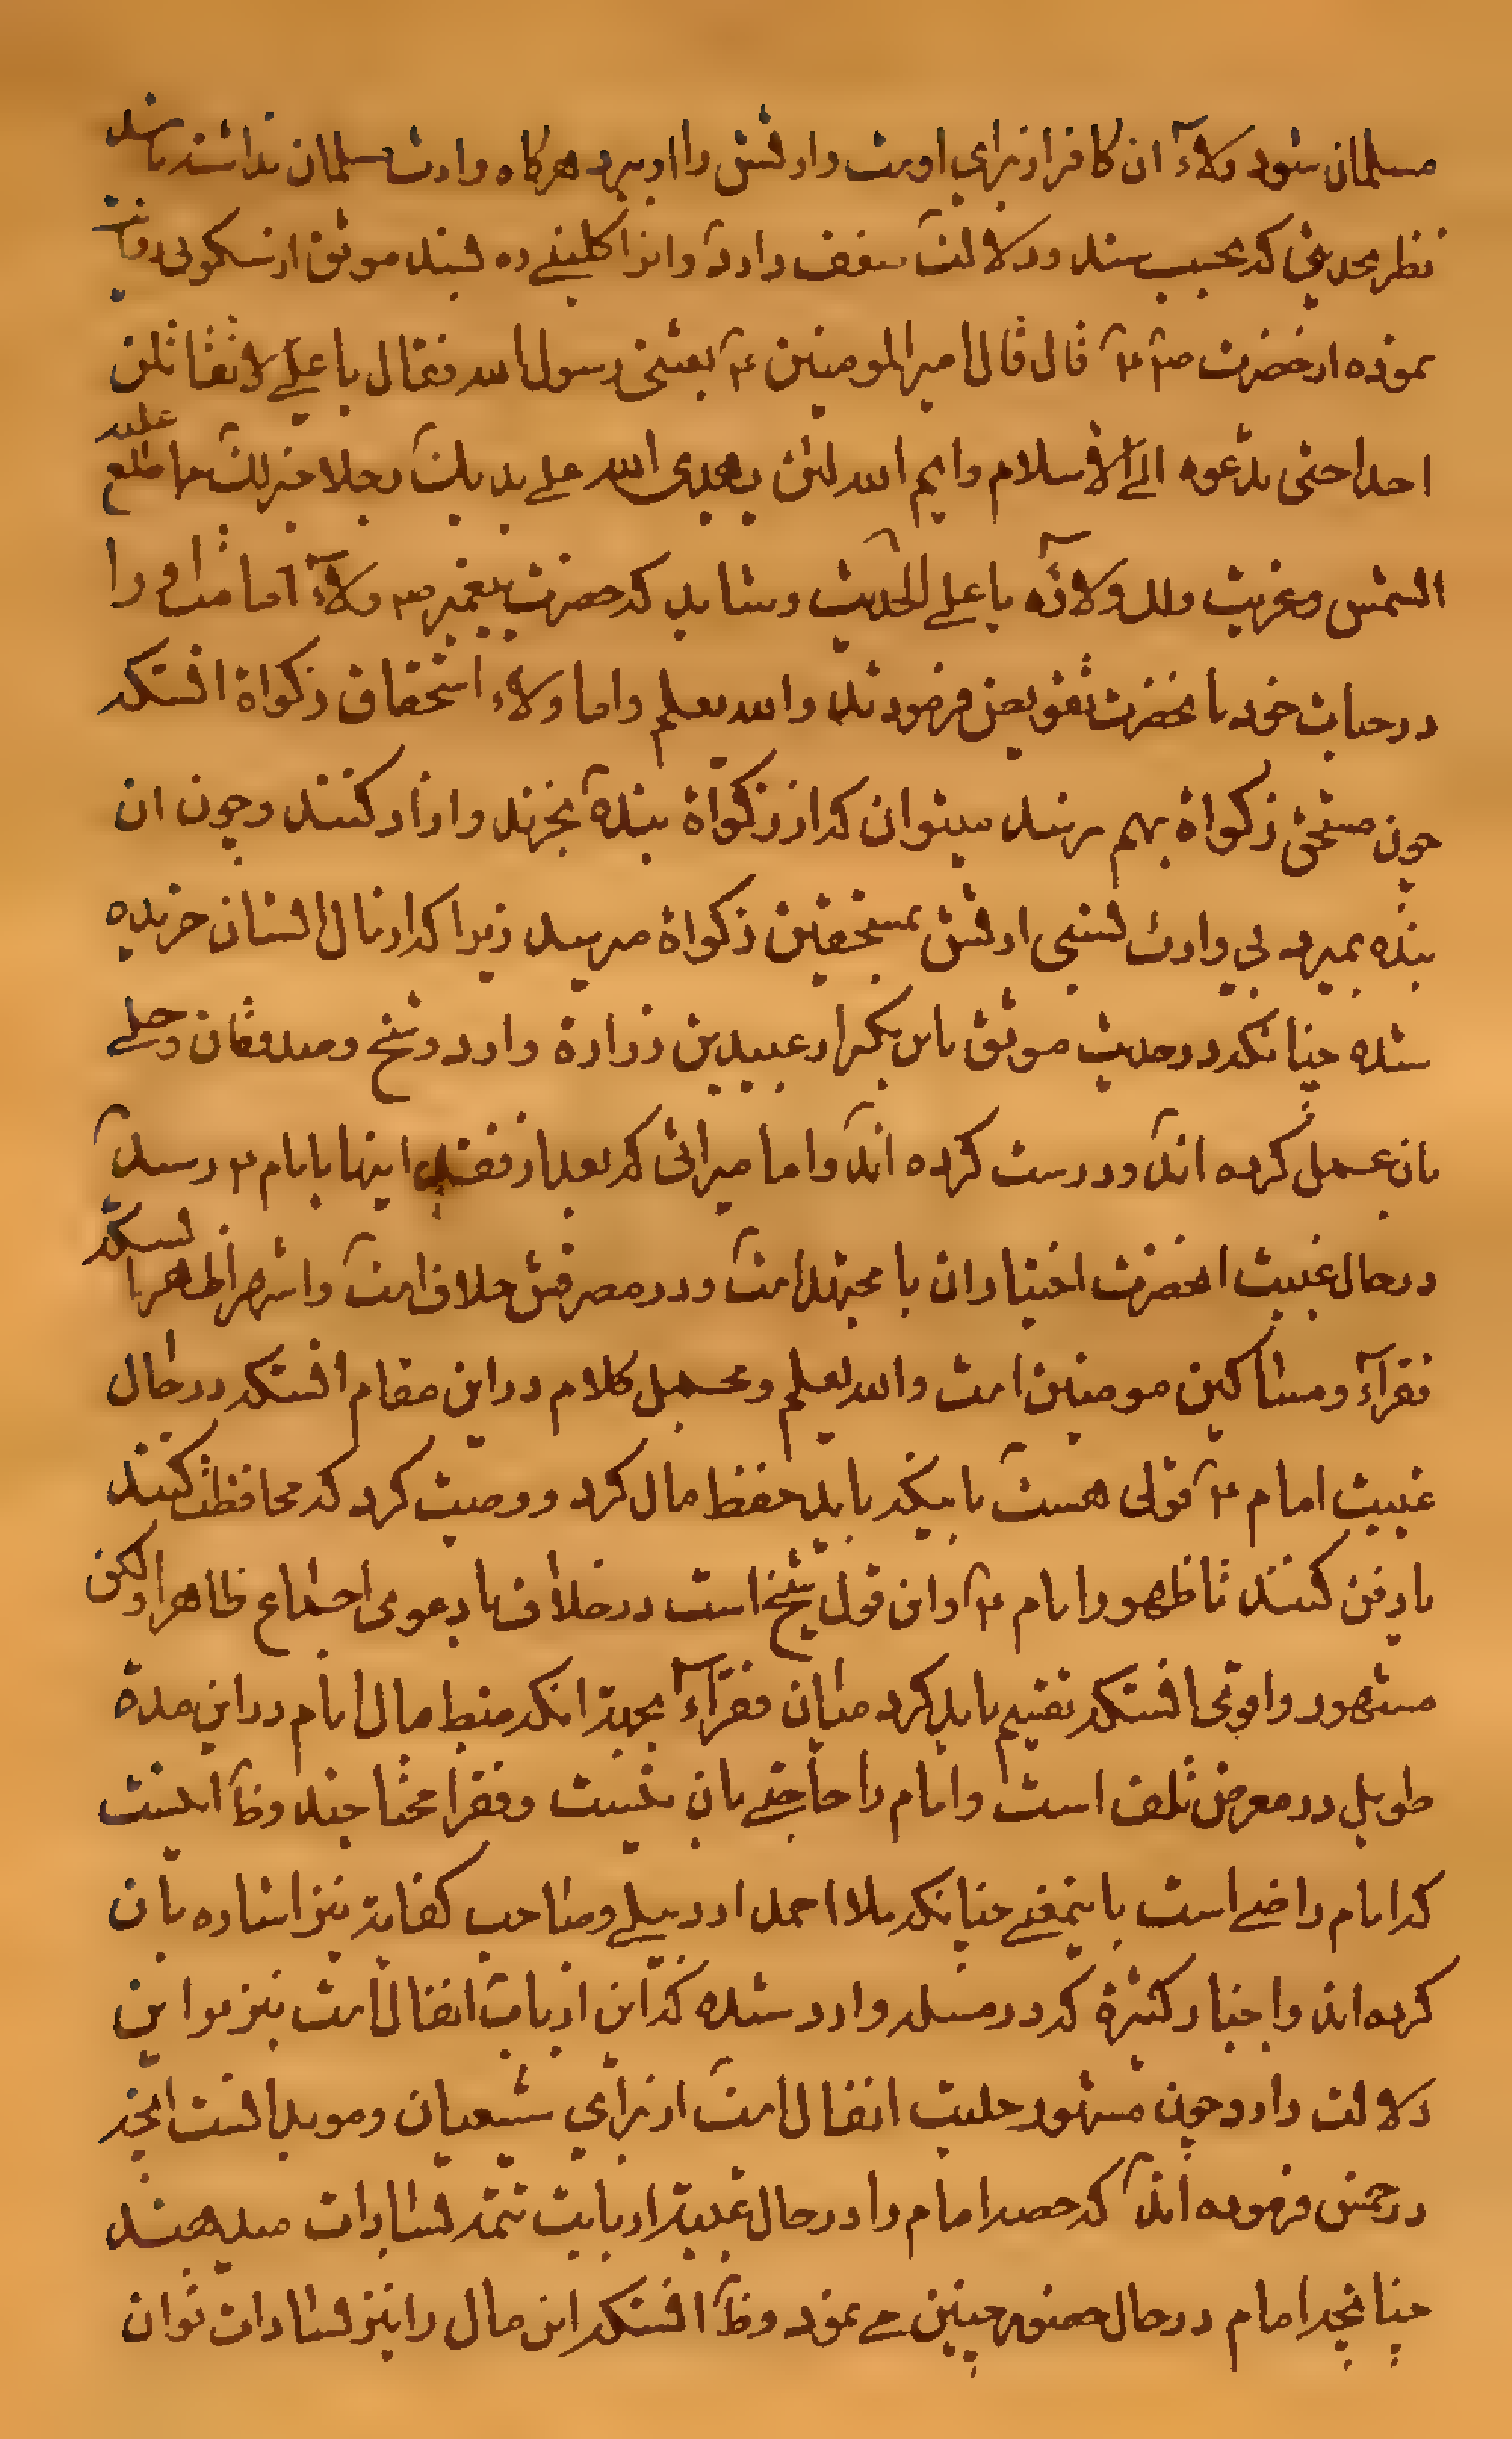 مسلمان شود ولاء ان کافر از برای اوست وارثش را او میبرد هرکاه وارث مسلمان نداشته باشد
نظر بحدیثی که بحسب سند و دلالت ضعف دارد وانرا کلینی ره بسند موثق از سکونی روایت
نموده از حضرت ص ع قال قال امیر المومنین ع بعثنی رسول الله فقال یا علی لا تقاتلن
احدا حتی تدعوه الی الاسلام وایم الله لئن یهدی الله علی یدیک رجلا خیر لک مما طلع علیه
الشمس و غربت ولك ولاؤه یا علی الحدیث و شاید که حضرت پیغمبر ص ولاء امامت را
در حیات خود بانحضرت تفویض فرمودند والله یعلم واما ولاء استحقاق زکواة انستکه
چون مستحق زکواة بهم نرسد میتوان که از زکواة بنده بخرند و ازاد کنند وچون ان
بنده بمیرد بی وارث نسبی ارثش بمستحقین زکواة میرسد زیرا که از مال ایشان خریده
شده چنانکه در حدیث موثق بابن بکیر از عبید بن زراره وارد و شیخ و صدوقان و حلی
بان عمل کرده اند و درست کرده اند واما میراثی که بعد از فقد اینها بامام ع رسد
در حال غیبت انحضرت اختیار ان با مجتهد است و در مصرفش خلاف است واشهر اظهر انستکه
فقراء و مساکین مومنین است والله یعلم و مجمل کلام در این مقام انستکه در حال
غیبت امام ع قولی هست باینکه باید حفظ مال کرد و وصیت کرد که محافظت کنند
یا دفن کنند تا ظهور امام ع واین قول شیخ است در خلاف با دعوی اجماع ظاهرا ولکن
مشهور واقوی انستکه تقسیم باید کرد میان فقراء بجهة انکه ضبط مال امام در این مدة
طویل در معرض تلف است وامام را حاجتی بان نیست و فقرا محتاجند وظ اینست
که امام راضی است باینمعنی چنانکه ملا احمد اردبیلی و صاحب کفایة نیز اشاره بان
کرده اند واخبار کثیره که در مسئله وارد شده که این از بابت انفال است نیز بر این
دلالت دارد چون مشهور حلیت انفال است از برای شیعیان و موید انست انچه
در خمس فرموده اند که حصه امام را در حال غیبة از بابت تتمه بسادات میدهند
چنانچه امام در حال حضور چنین می نمود وظ انستکه این مال را نیز بسادات توان